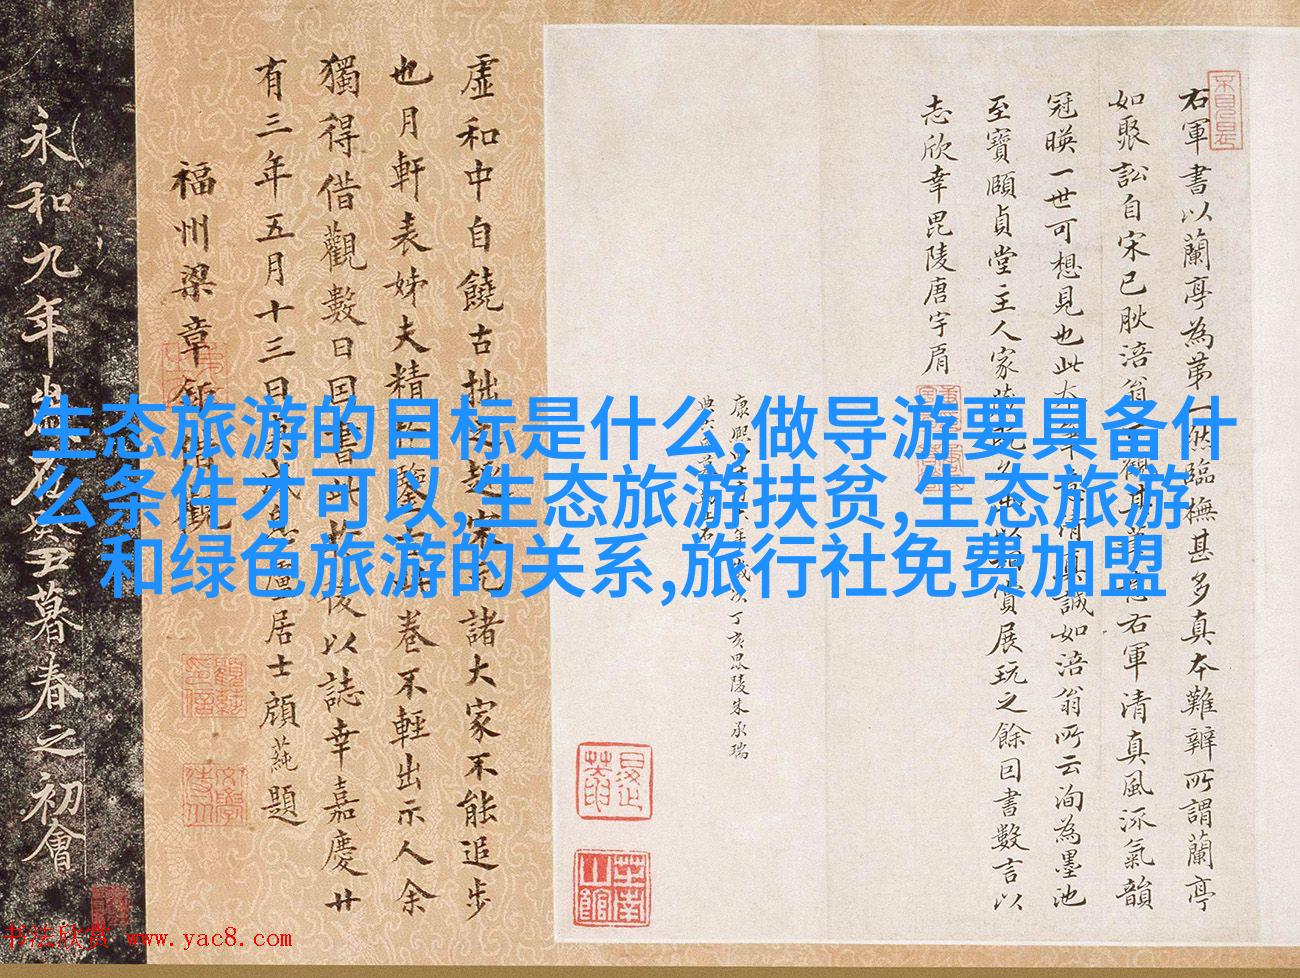 右軍書以蘭亭為第一然臨橅甚多真本難辨所謂蘭亭
如聚訟自宋已
冠暎一世可想見也此
至寶頤貞堂主人家
展玩之餘因書數言以
志欣幸毘陵唐宇肩
康熙
丁亥毘陵朱承瑞
虛和中自饒古拙之趣
諸大家不能追步
也月軒表姊夫精
卷不輕出示人余
獨得借觀數日因書此
後以誌幸嘉慶廿
有三年五月十三日
居士顧蒓題
福州梁章鉅借觀
永和九年
暮春之初會
生态旅游的目标是什么,做导游要具备什
么条件才可以,生态旅游扶贫,生态旅游
和绿色旅游的关系,旅行社免费加盟
书法欣赏 www.yac8.com